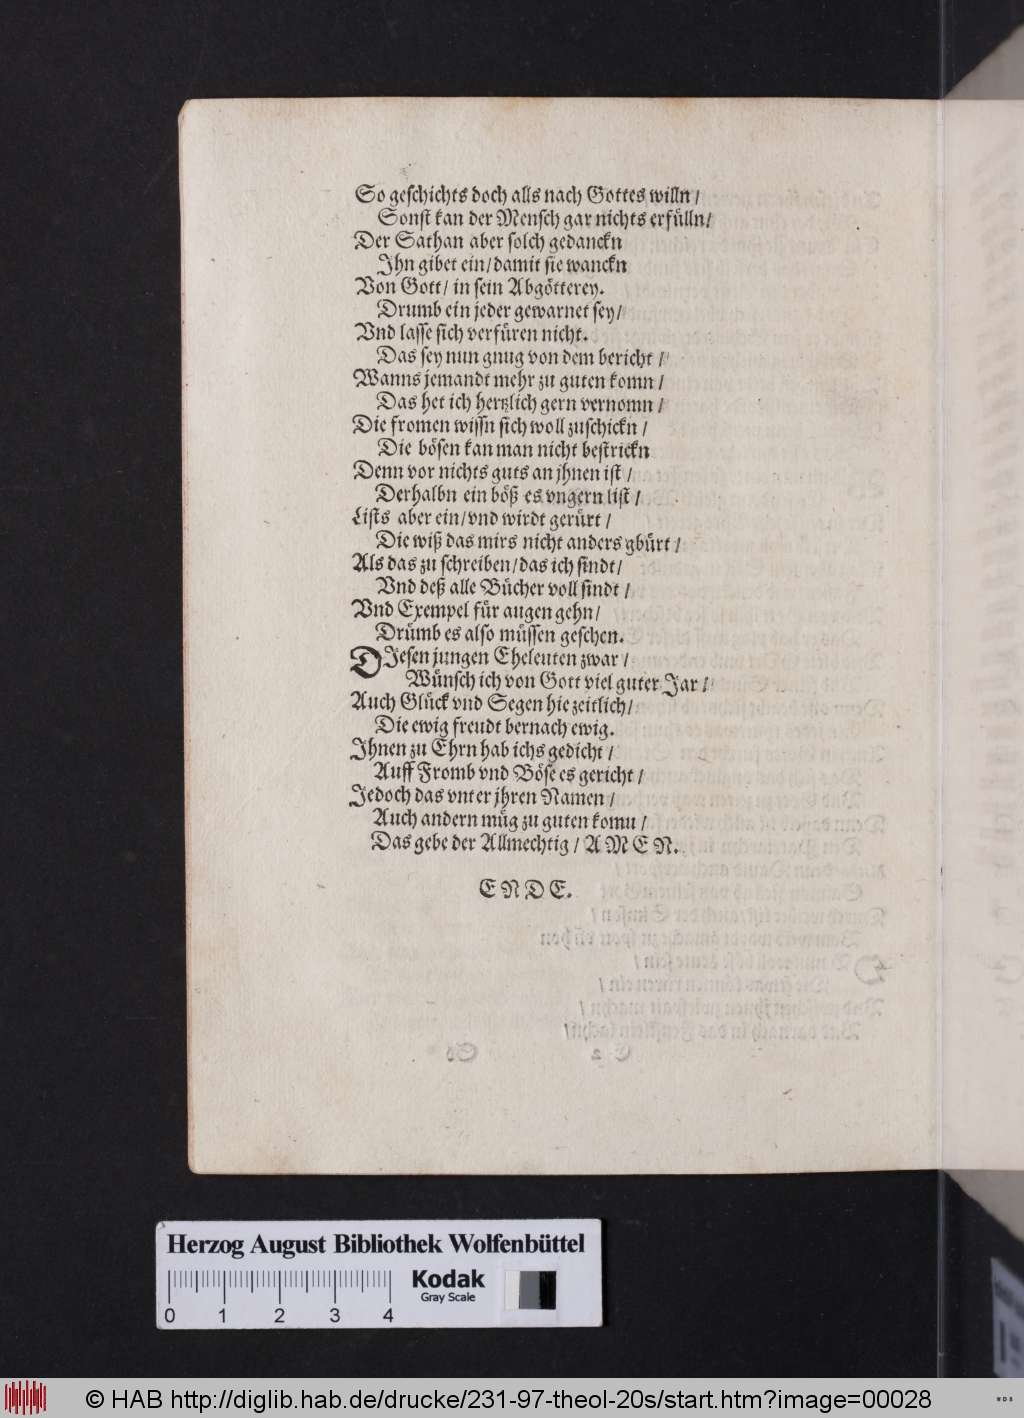 So geschichts doch alls nach Gottes willn /
Sonst kan der Mensch gar nichts erfülln /
Der Sathan aber solch gedanckn
Ihn gibet ein / damit sie wanckn
Von Gott / in sein Abgötterey.
Drumb ein jeder gewarnet sey /
Vnd lasse sich verfüren nicht.
Das sey nun gnug von dem bericht /
Wanns jemandt mehr zu guten komn /
Das het ich hertzlich gern vernomn /
Die fromen wissn sich woll zuschickn /
Die bösen kan man nicht bestrickn
Denn vor nichts guts an jhnen ist /
Derhalbn ein böß es vngern list /
Lists aber ein / vnd wirdt gerürt /
Die wiß das mirs nicht anders gbürt /
Als das zu schreiben / das ich findt /
Vnd deß alle Bücher voll sindt /
Vnd Exempel für augen gehn /
Drümb es also müssen geschen.
DIesen jungen Eheleuten zwar /
Wünsch ich von Gott viel guter Jar /
Auch Glück vnd Segen hie zeitlich /
Die ewig freudt hernach ewig.
Ihnen zu Ehrn hab ichs gedicht /
Auff Fromb vnd Böse es gericht /
Jedoch das vnter jhren Namen /
Auch andern müg zu guten komn /
Das gebe der Allmechtig / AMEN.
ENDE.
Herzog August Bibliothek Wolfenbüttel
Kodak
Gray Scale
0 1 2 3 4
© HAB http://diglib.hab.de/drucke/231-97-theol-20s/start.htm?image=00028